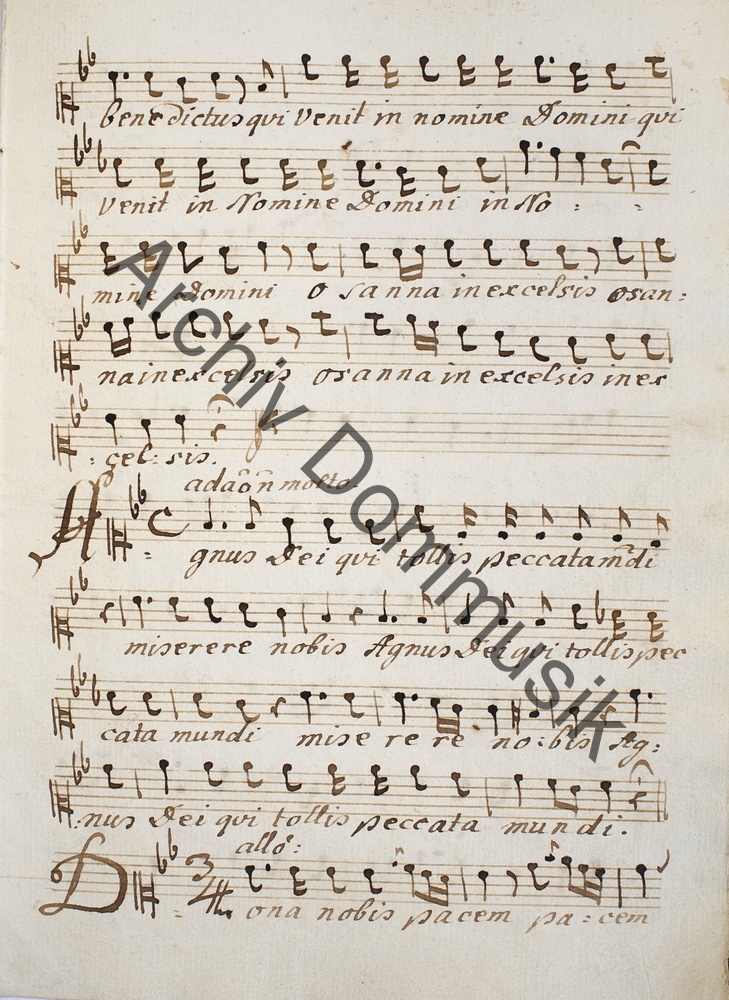 benedictus qui Venit in nomine Domini qui
Venit in Nomine Domini in No : :
mine Domini O sanna in excelsis osan:
na in excelsis osanna in excelsis in ex
: cel: sis.
molto
Agnus Dei qui tollis peccata mũdi
miserere nobis Agnus Dei qui tollis pec
cata mundi mise re re no:bis Ag:
:nus Dei qui tollis peccata mundi.
allo:
3/4
Dona nobis pacem pa:cem
Archiv Dommusik